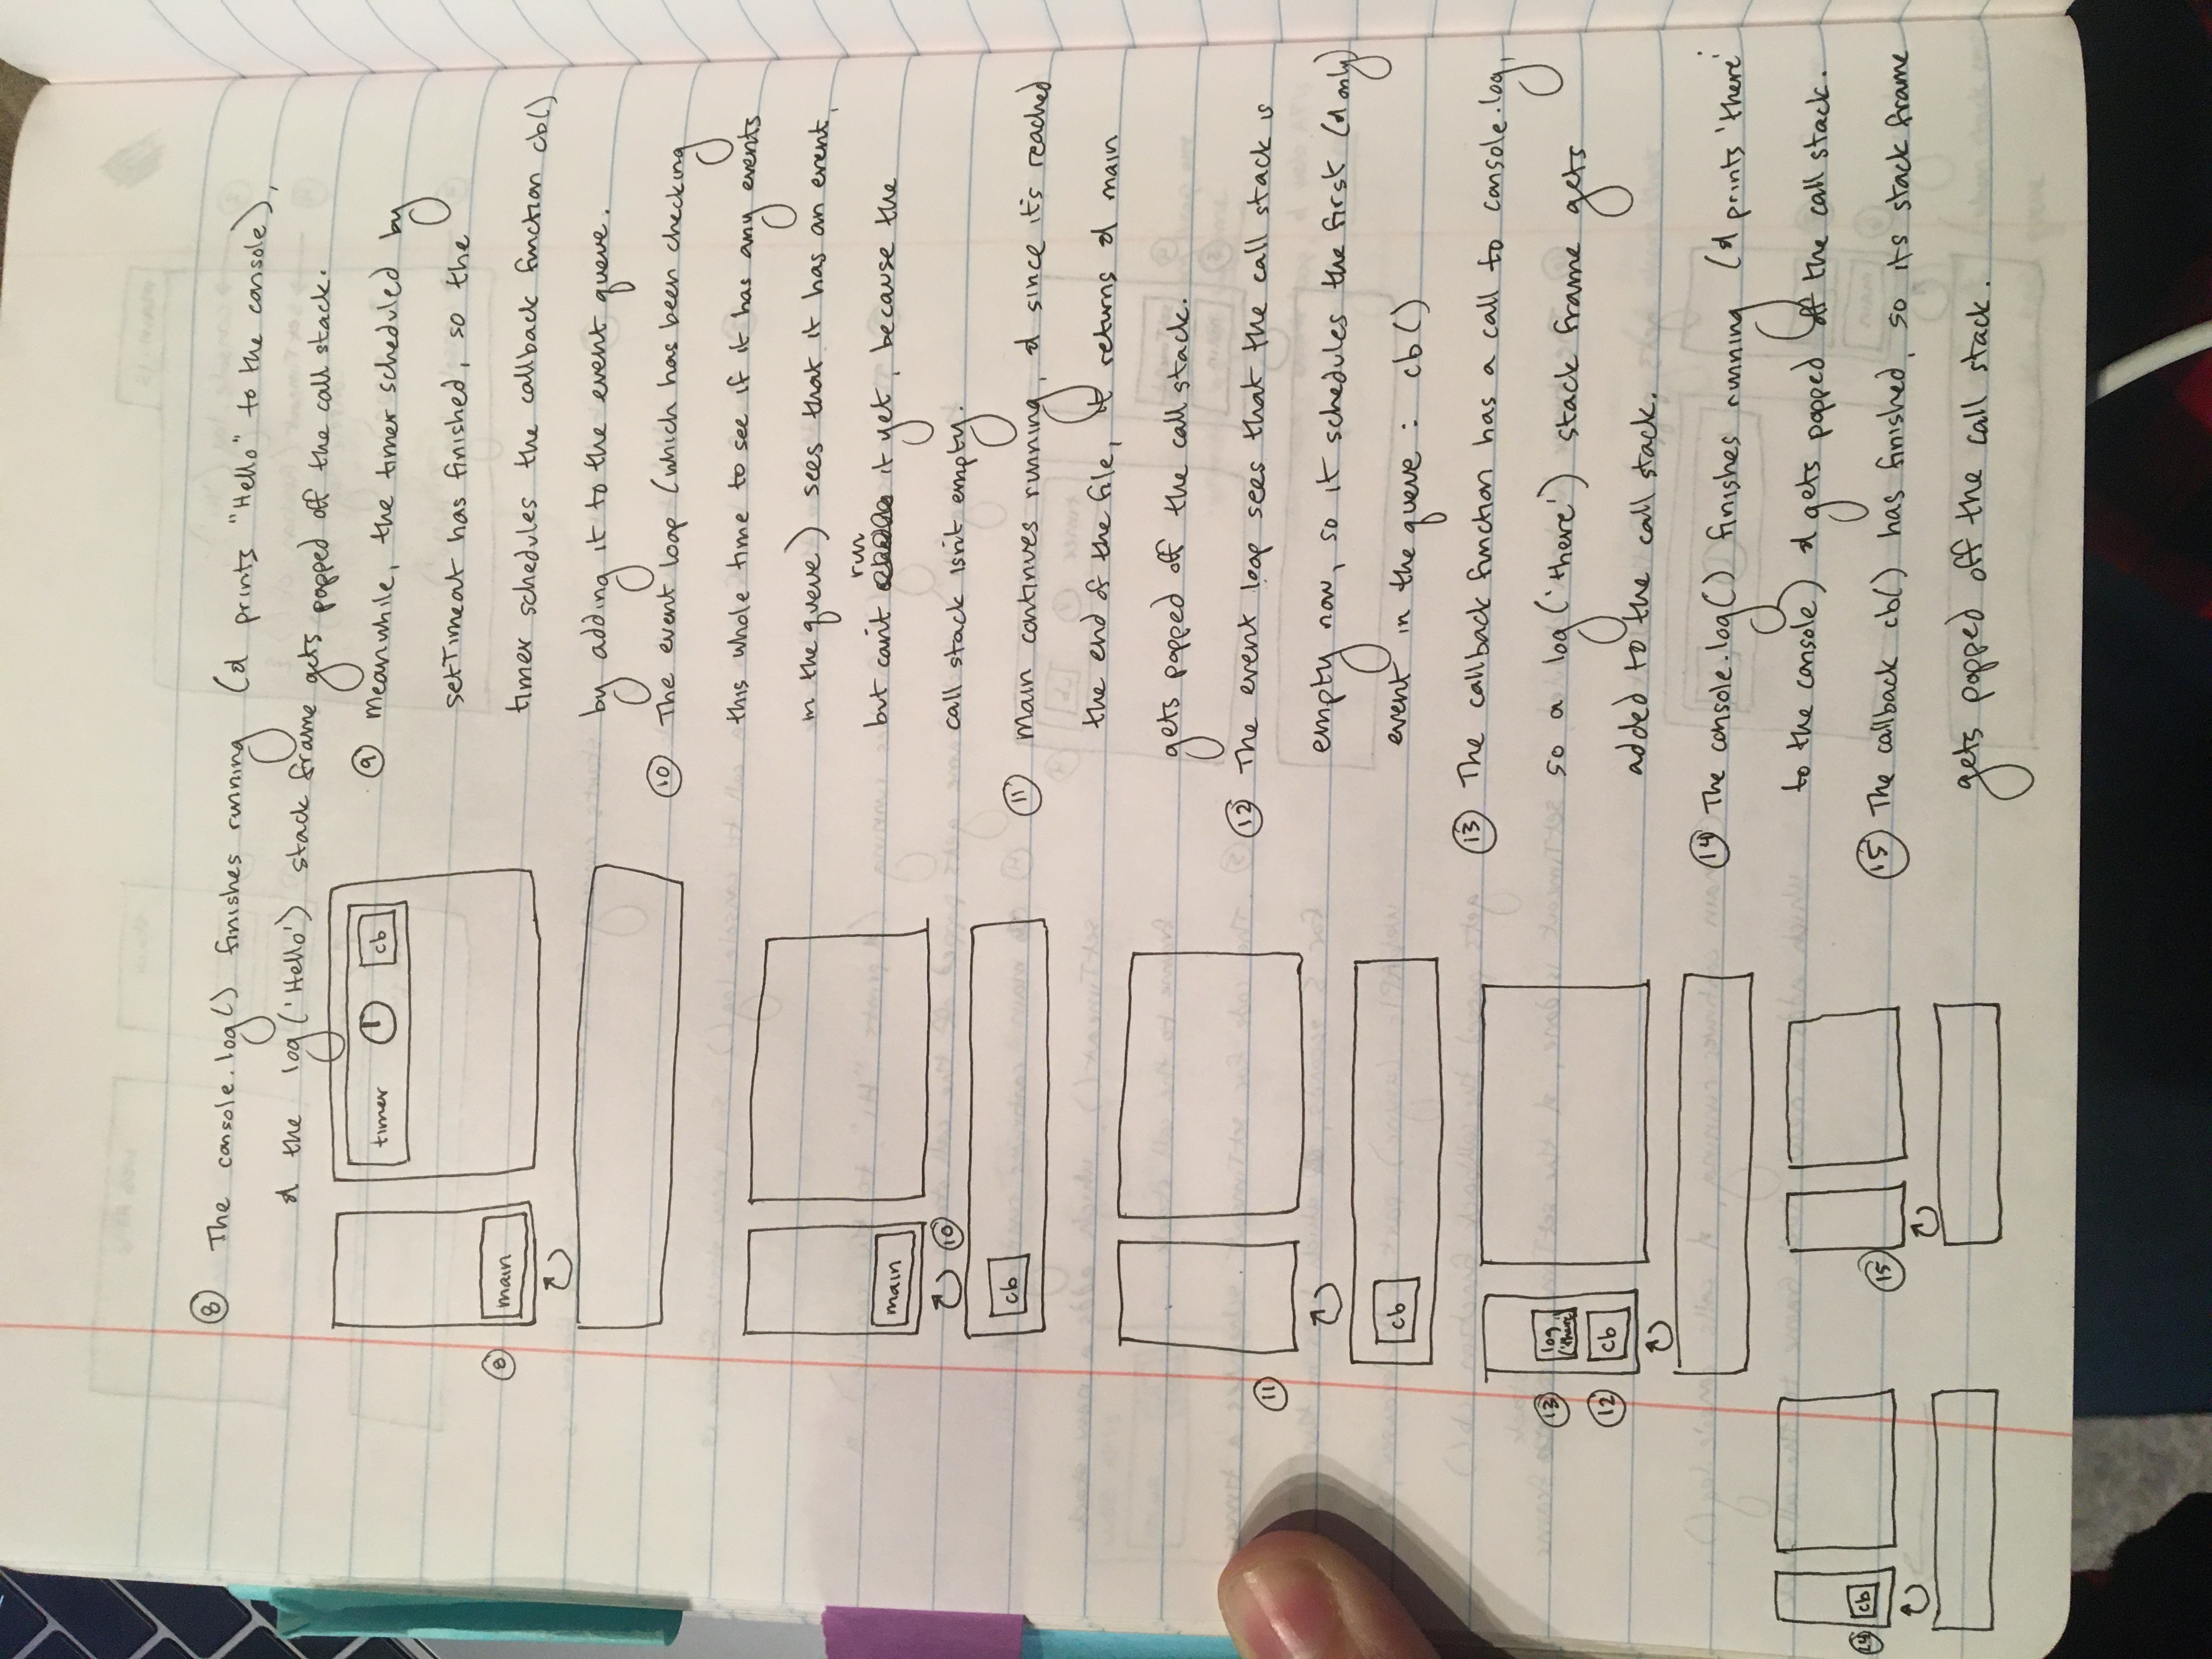 ⑧ The console.log() finishes running (& prints "Hello" to the console),
& the log('Hello') stack frame gets popped off the call stack.
timer cb
⑧ main
⑨ meanwhile, the timer scheduled by
setTimeout has finished, so the
timer schedules the callback function cb()
by adding it to the event queue.
⑩ The event loop (which has been checking
this whole time to see if it has any events
in the queue) sees that it has an event,
run
but can't it yet, because the
call stack isn't empty.
main
⑩
cb
⑪ main continues running, & since it's reached
the end of the file, it returns & main
gets popped off the call stack.
⑪
cb
⑫ The event loop sees that the call stack is
empty now, so it schedules the first (& only)
event in the queue: cb()
⑬ The callback function has a call to console.log,
so a log('there') stack frame gets
added to the call stack.
⑬ log
('there')
⑫ cb
⑭ The console.log() finishes running (& prints 'there'
to the console) & gets popped off the call stack.
⑭ cb
⑮
⑮ The callback cb() has finished, so its stack frame
gets popped off the call stack.